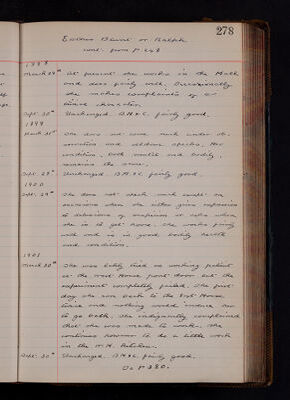 278
Blunt or Ralph
cont. from P. 248
1898
March 24th At present she works in the Hall
and does fairly well. Occasionally
she makes complaints of a
character.
Sept. 30th Unchanged. B.H. & C. fairly good.
1899
March 31st She does not come much under ob-
servation and seldom speaks. Her
condition, both mental and bodily,
remains the same.
Sept 29th Unchanged. B.H.&C. fairly good.
1900
Sept. 29th She does not speak much except on
occasions when she either gives expression
to delusions of suspicion or asks when
she is to get home. She works fairly
well and is in good bodily health
and condition.
1901
March 30th She was lately tried as working patient
at the West House front door but the
experiment completely failed. The first
day she ran back to the East House
twice and nothing would induce her
to go back. She indignantly complained
that she was made to work. She
continues however to do a little work
in the Kitchen.
Sept. 30th Unchanged. B.H.&C. fairly good.
To P. 380.